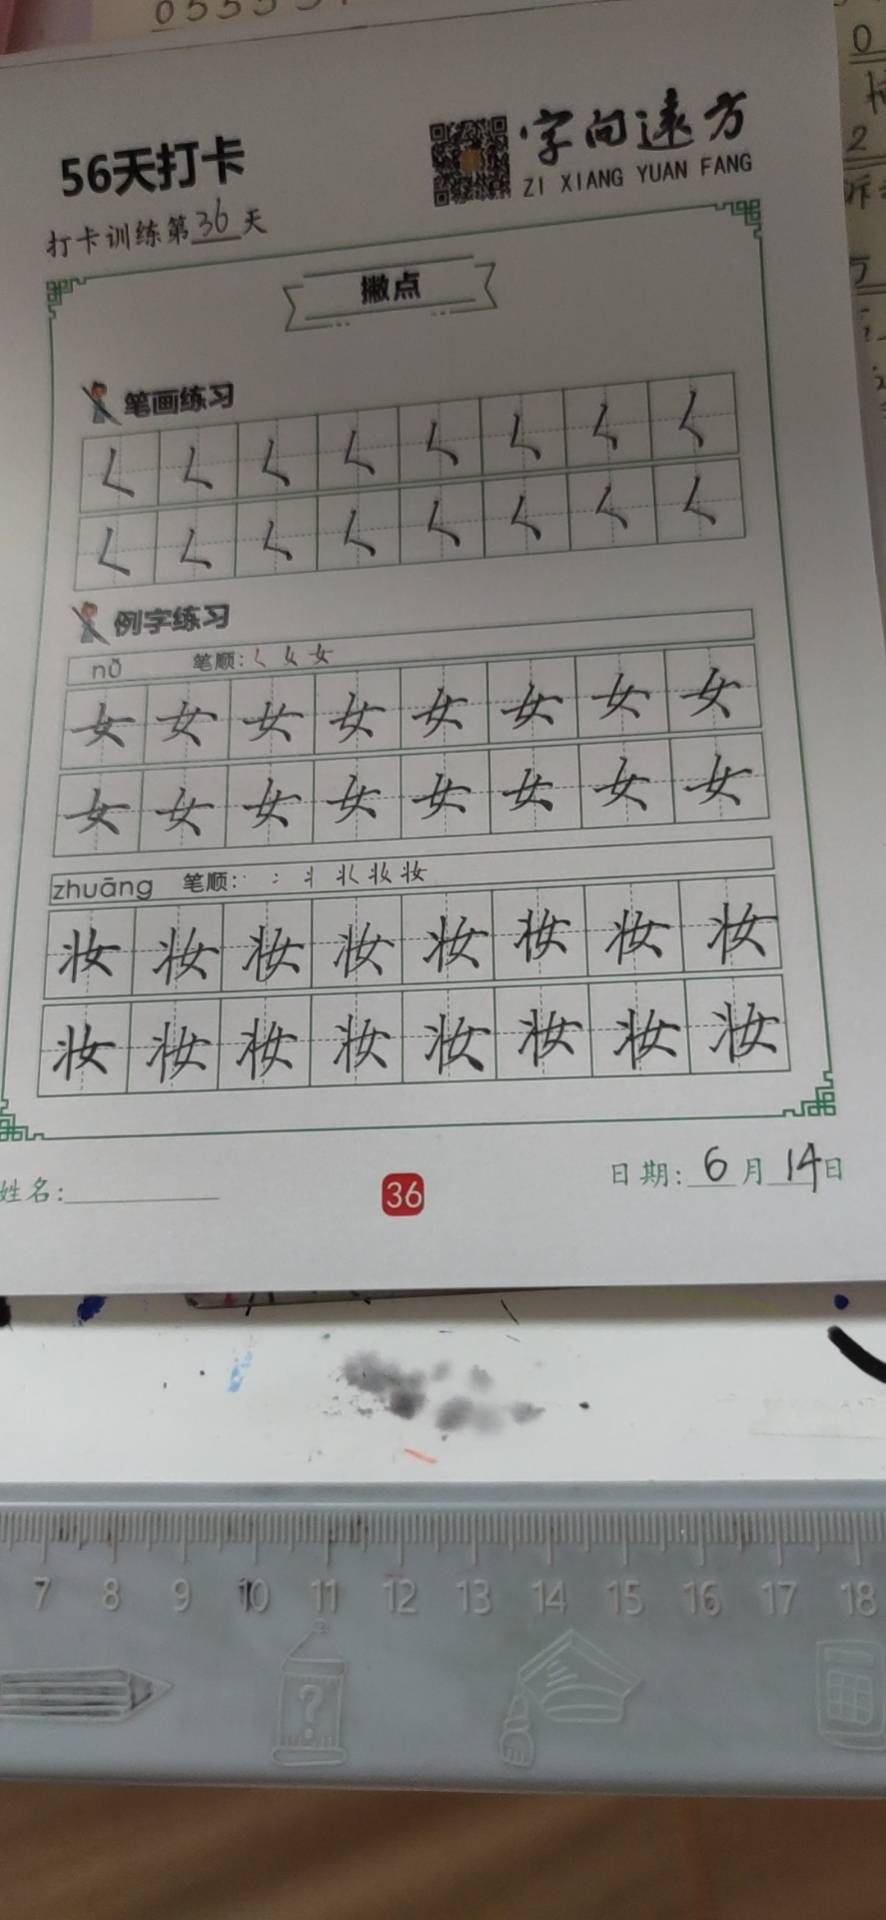 字向远方
56天打卡
ZI XIANG YUAN FANG
打卡训练第36天
撇点
笔画练习
𡿨 𡿨 𡿨 𡿨 𡿨 𡿨 𡿨 𡿨
𡿨 𡿨 𡿨 𡿨 𡿨 𡿨 𡿨 𡿨
例字练习
nǚ 笔顺: 𡿨 女 女
女 女 女 女 女 女 女 女
女 女 女 女 女 女 女 女
zhuāng 笔顺: 丶 冫 丬 妆 妆
妆 妆 妆 妆 妆 妆 妆 妆
妆 妆 妆 妆 妆 妆 妆 妆
姓名: 36 日期: 6月14日
7 8 9 10 11 12 13 14 15 16 17 18
?